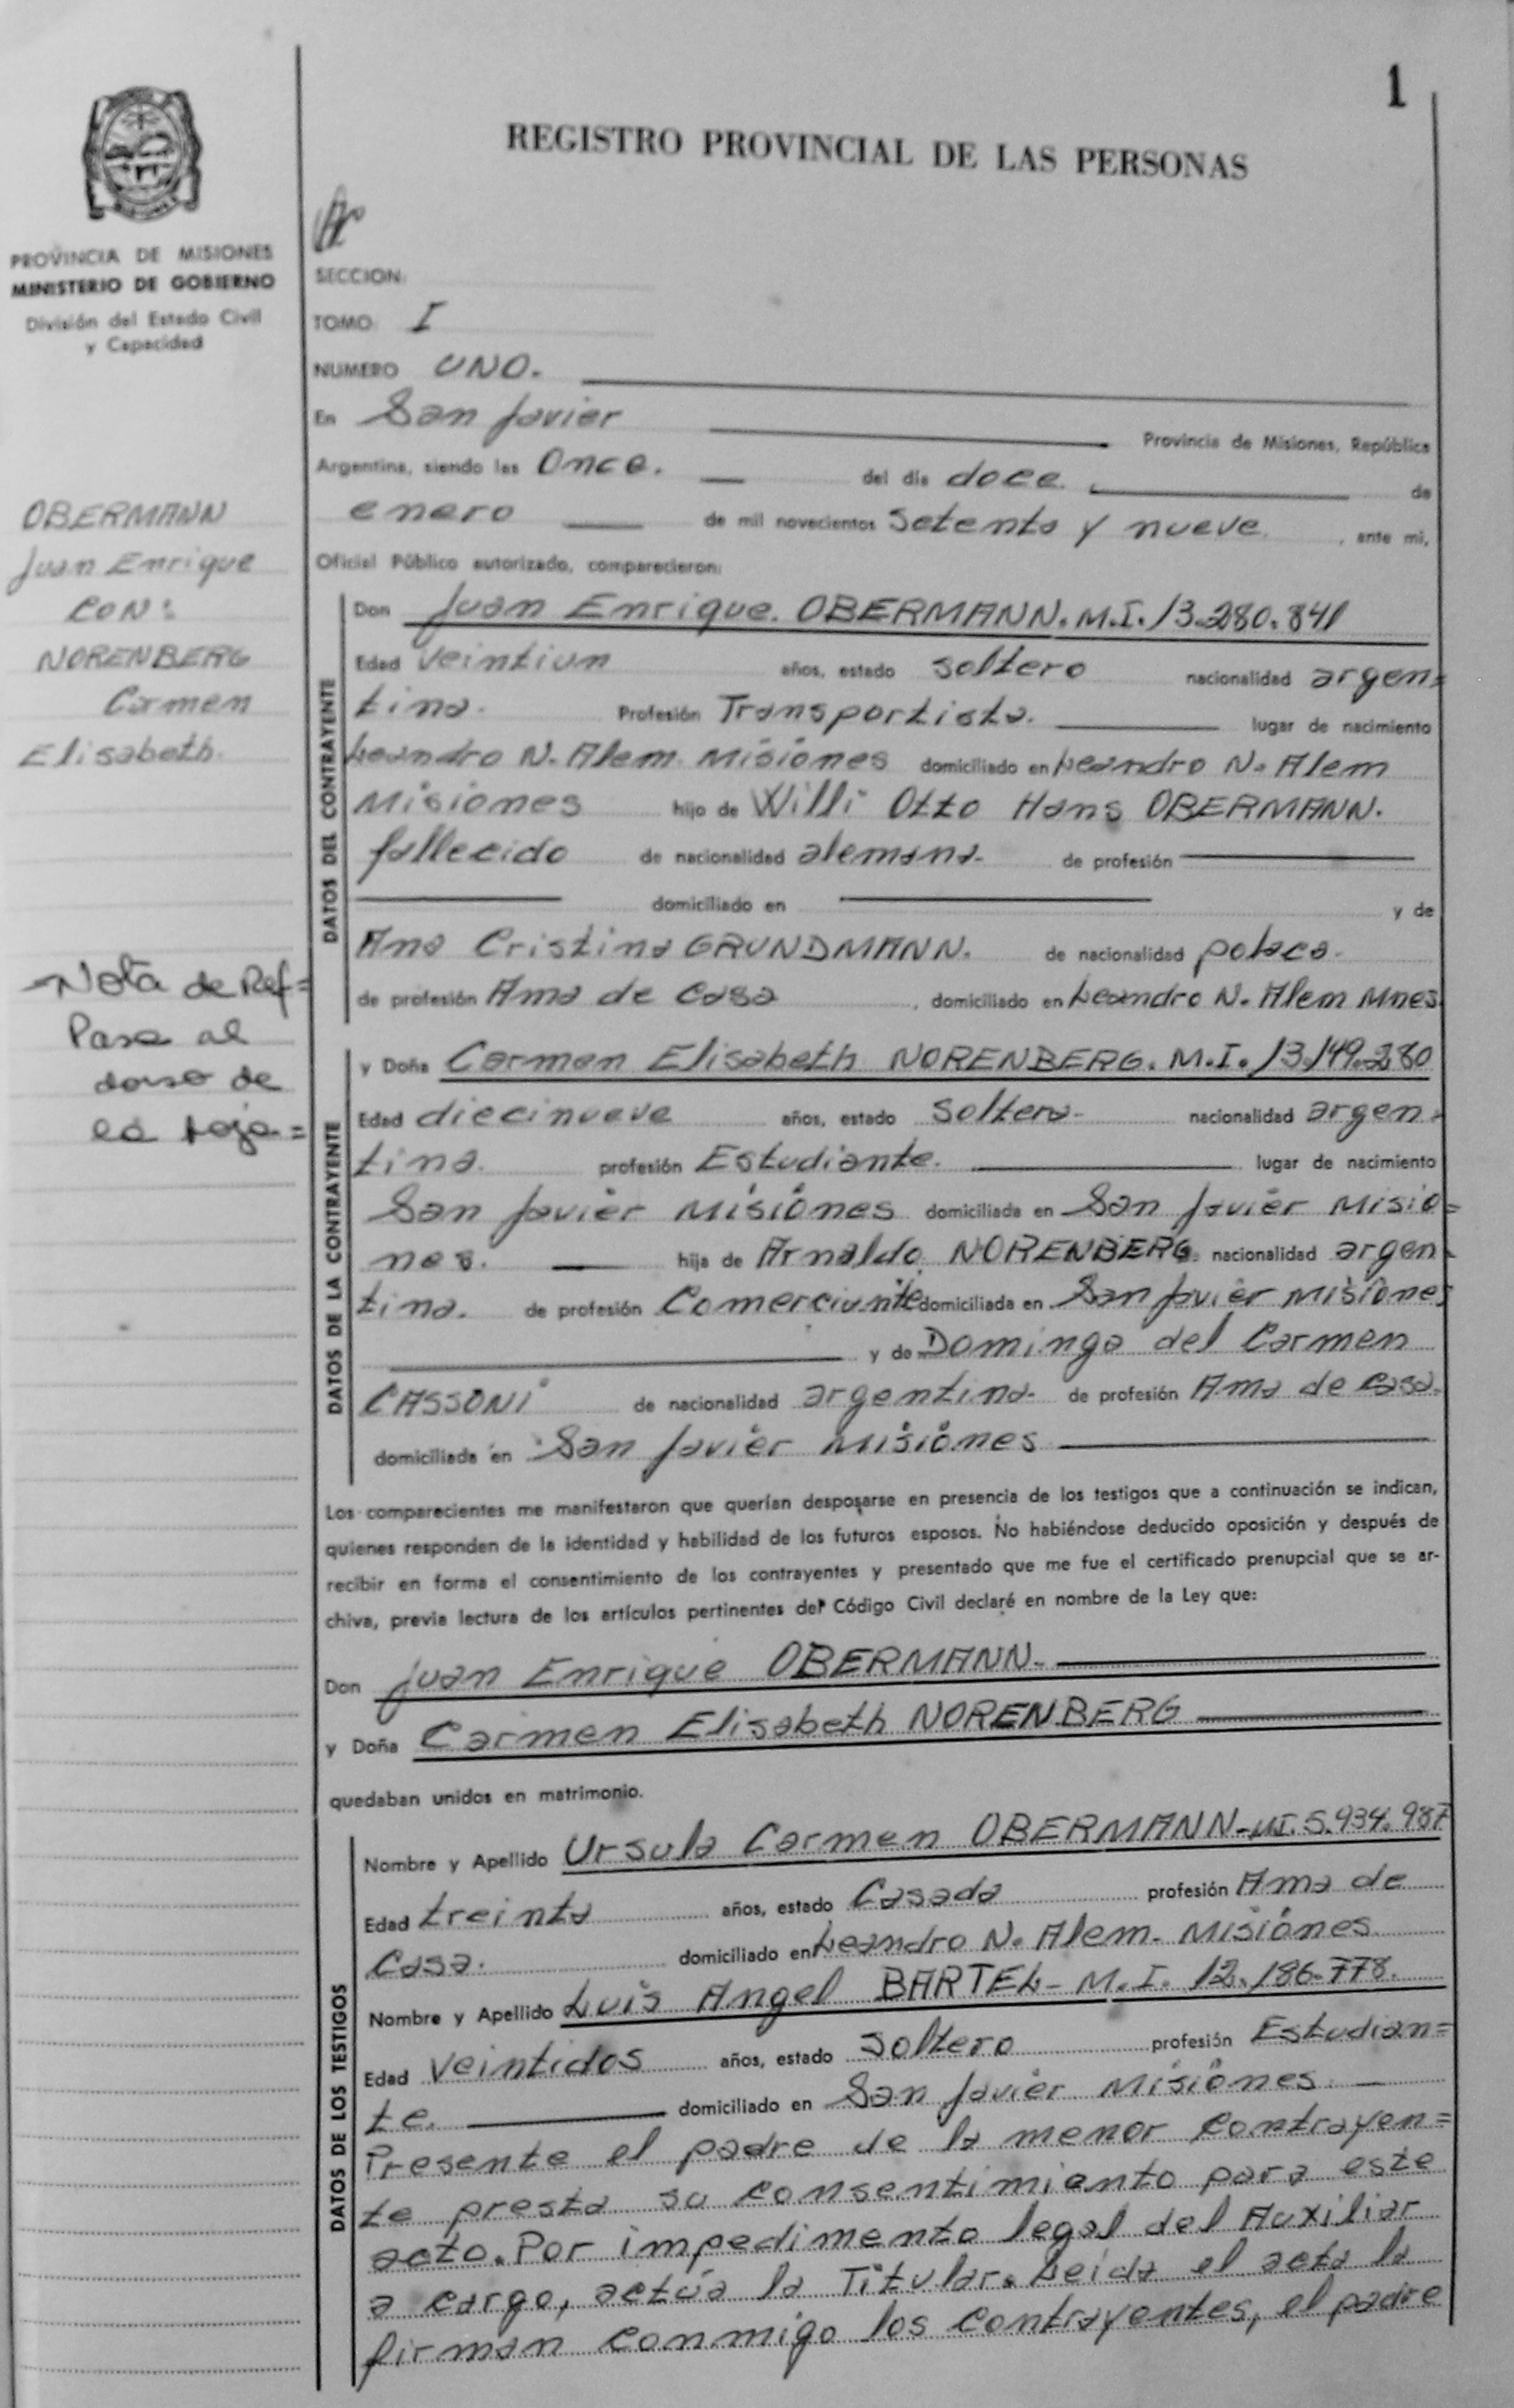 1
REGISTRO PROVINCIAL DE LAS PERSONAS
PROVINCIA DE MISIONES
MINISTERIO DE GOBIERNO
División del Estado Civil
y Capacidad
SECCION
TOMO I
NUMERO UNO.
En San Javier Provincia de Misiones, República
Argentina, siendo las Once. del día doce. de
enero de mil novecientos setenta y nueve , ante mi,
Oficial Público autorizado, comparecieron:
OBERMANN
Juan Enrique
CON:
NORENBERG
Carmen
Elisabeth.
Nota de Ref=
Pasa al
dorso de
la hoja=
DATOS DEL CONTRAYENTE
Don Juan Enrique. OBERMANN. M.I. 13.280.841
Edad veintiun años, estado soltero nacionalidad argen=
tina. Profesión Transportista. lugar de nacimiento
Leandro N. Alem. Misiones domiciliado en Leandro N. Alem
Misiones hijo de Willi Otto Hans OBERMANN.
fallecido de nacionalidad alemana. de profesión
domiciliado en y de
Ana Cristina GRUNDMANN. de nacionalidad polaca.
de profesión Ama de casa , domiciliado en Leandro N. Alem Mnes.
DATOS DE LA CONTRAYENTE
y Doña Carmen Elisabeth NORENBERG. M.I. 13.149.280
Edad diecinueve años, estado soltera- nacionalidad argen-
tina. profesión Estudiante. lugar de nacimiento
San Javier Misiones domiciliada en San Javier Misio=
nes. hija de Arnaldo NORENBERG. nacionalidad argen-
tina. de profesión Comerciante domiciliada en San Javier Misiones
y de Dominga del Carmen
CASSONI de nacionalidad argentina- de profesión Ama de casa.
domiciliada en San Javier Misiones
Los comparecientes me manifestaron que querían desposarse en presencia de los testigos que a continuación se indican,
quienes responden de la identidad y habilidad de los futuros esposos. No habiéndose deducido oposición y después de
recibir en forma el consentimiento de los contrayentes y presentado que me fue el certificado prenupcial que se ar-
chiva, previa lectura de los artículos pertinentes del Código Civil declaré en nombre de la Ley que:
Don Juan Enrique OBERMANN.
y Doña Carmen Elisabeth NORENBERG
quedaban unidos en matrimonio.
DATOS DE LOS TESTIGOS
Nombre y Apellido Ursula Carmen OBERMANN-M.I. 5.934.987
Edad treinta años, estado Casada profesión Ama de
Casa. domiciliado en Leandro N. Alem. Misiones
Nombre y Apellido Luis Angel BARTEL- M.I. 12.186.778.
Edad veintidos años, estado soltero profesión Estudian=
te. domiciliado en San Javier Misiones.
Presente el padre de la menor contrayen=
te presta su consentimiento para este
acto. Por impedimento legal del Auxiliar
a cargo, actúa la Titular. Leida el acta la
firman conmigo los contrayentes, el padre